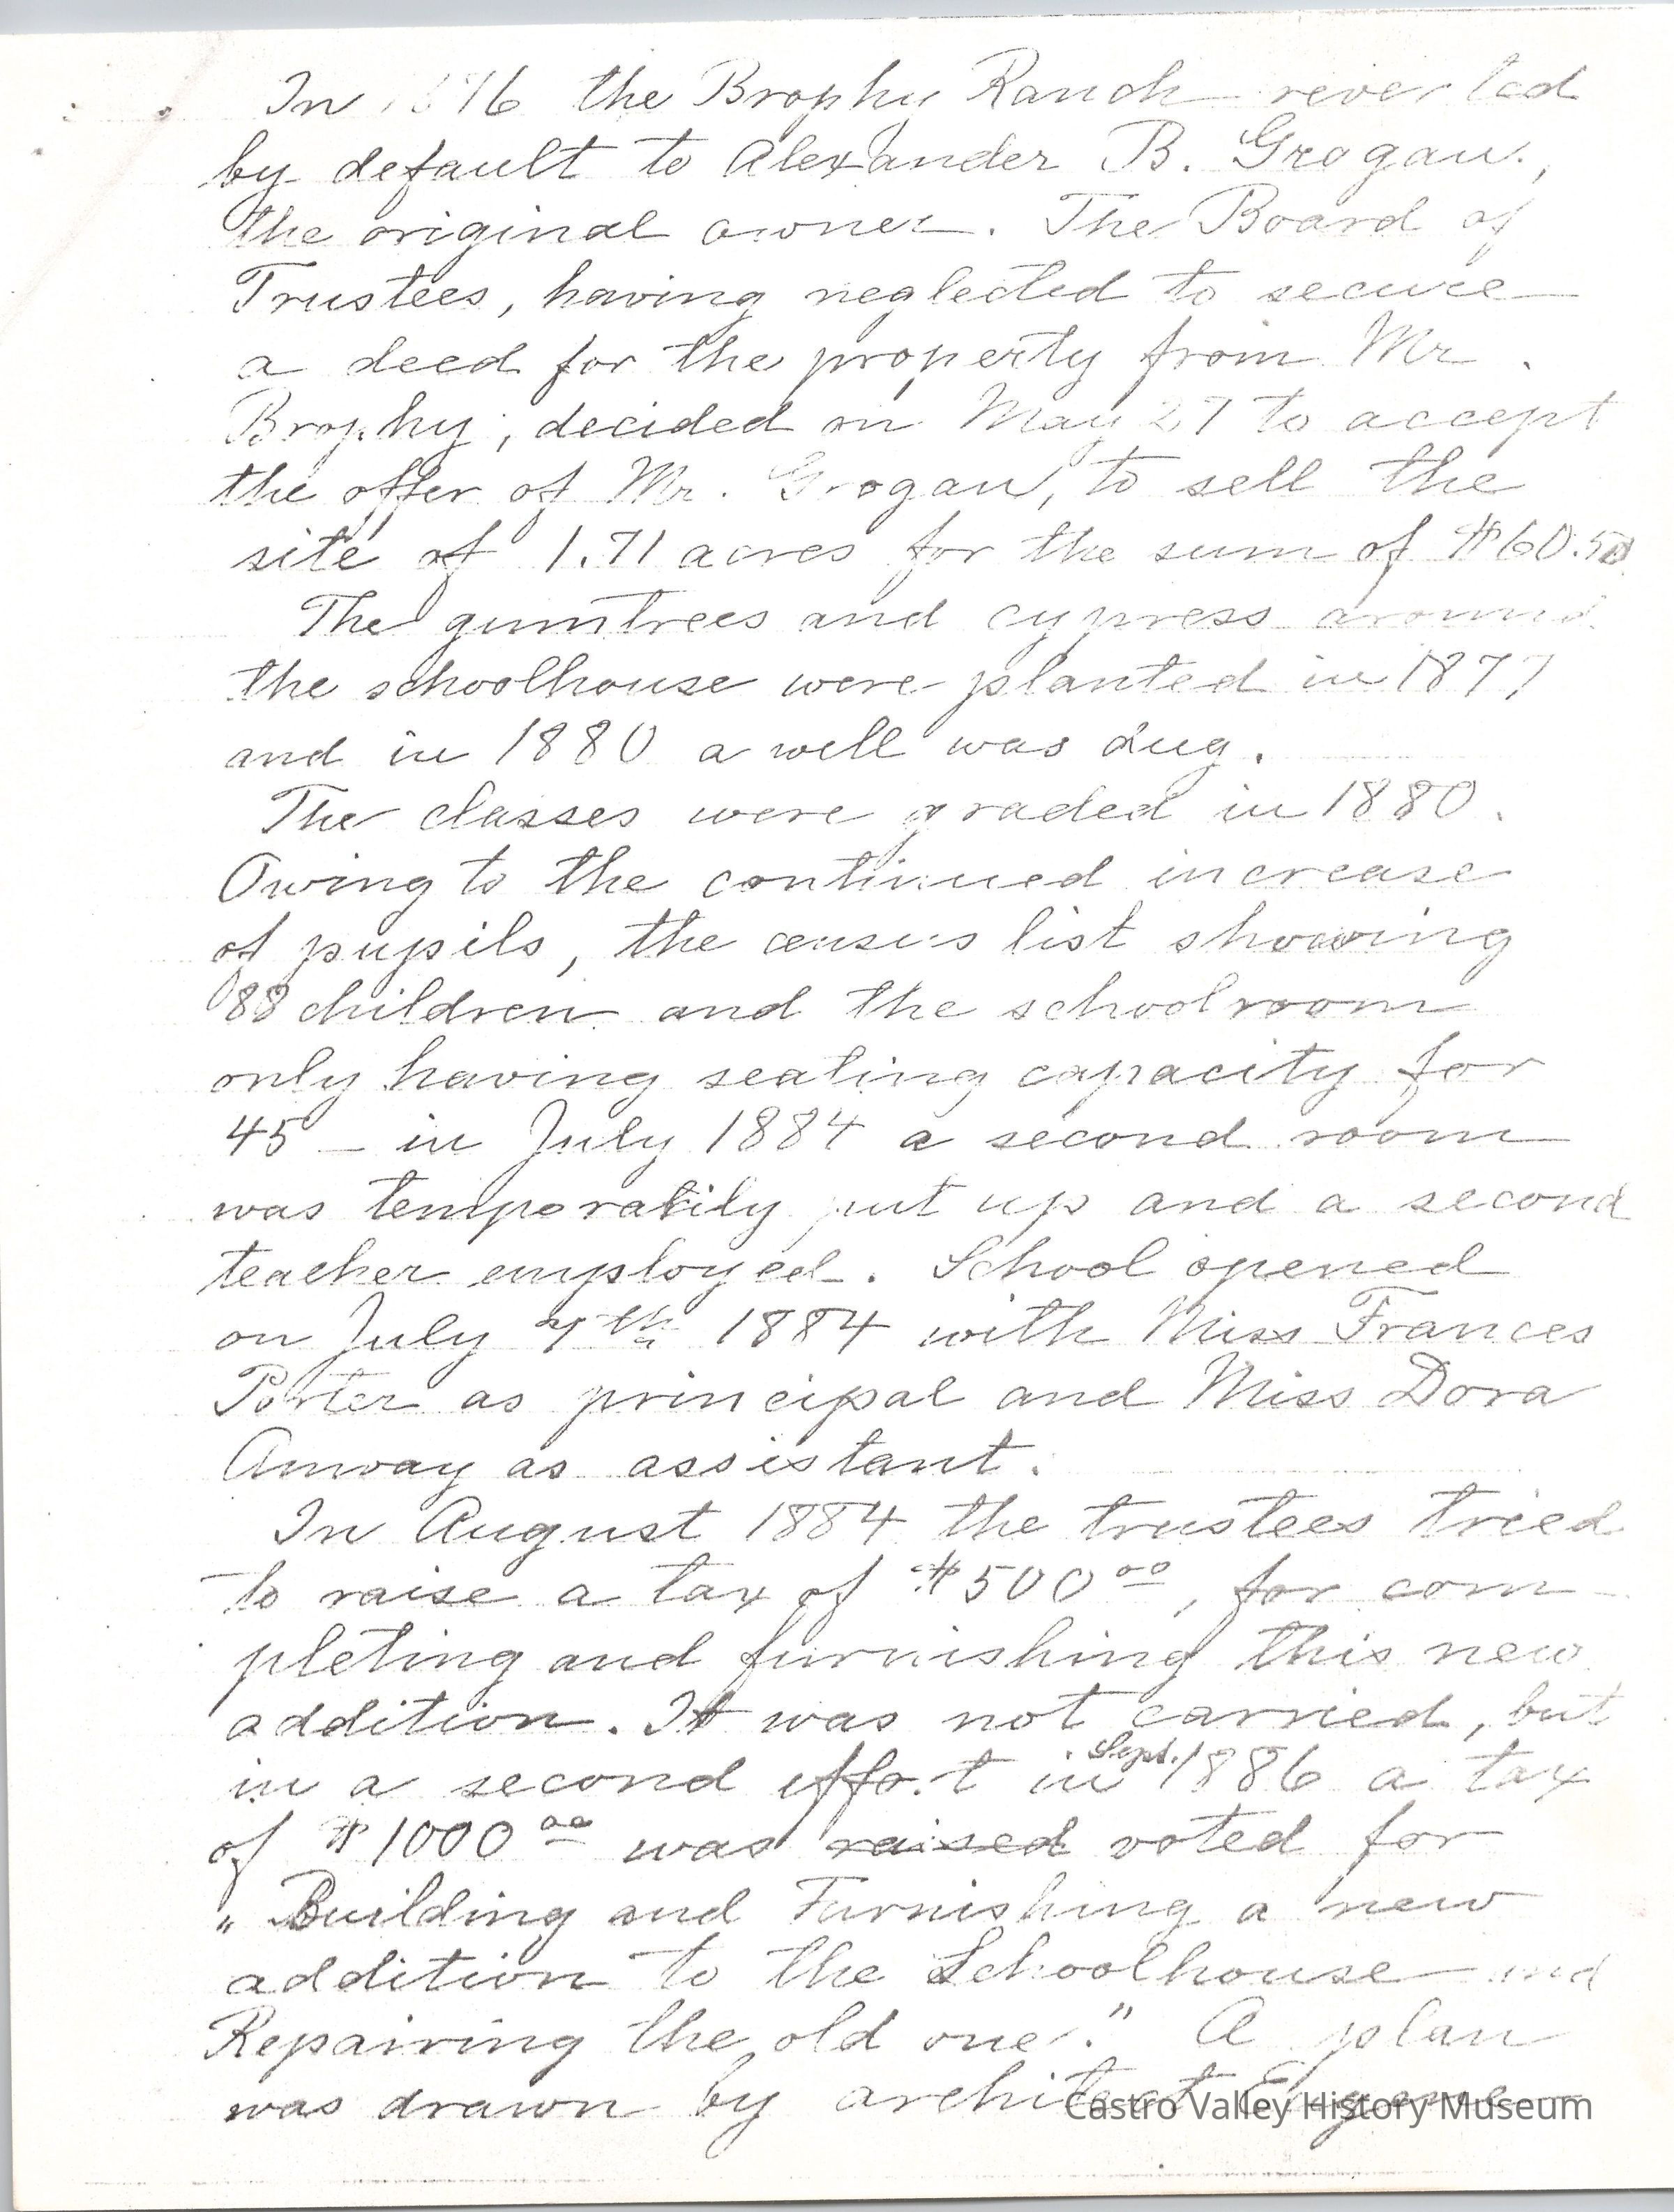 In 1876 the Brophy Ranch reverted
by default to Alexander B. Grogan,
the original owner. The Board of
Trustees, having neglected to secure
a deed for the property from Mr.
Brophy, decided on May 27 to accept
the offer of Mr. Grogan, to sell the
site of 1.71 acres for the sum of $60.50
The gumtrees and cypress around
the schoolhouse were planted in 1877
and in 1880 a well was dug.
The classes were graded in 1880.
Owing to the continued increase
of pupils, the census list showing
88 children and the schoolroom
only having seating capacity for
45 – in July 1884 a second room
was temporarily put up and a second
teacher employed. School opened
on July 7th 1884 with Miss Frances
Porter as principal and Miss Dora
Amway as assistant.
In August 1884 the trustees tried
to raise a tax of $500.00, for com-
pleting and furnishing this new
addition. It was not carried, but
in a second effort in Sept. 1886 a tax
of $1000.00 was raised voted for
"Building and Furnishing a new
addition to the Schoolhouse and
Repairing the old one." A plan
was drawn by architect Eugene
Castro Valley History Museum